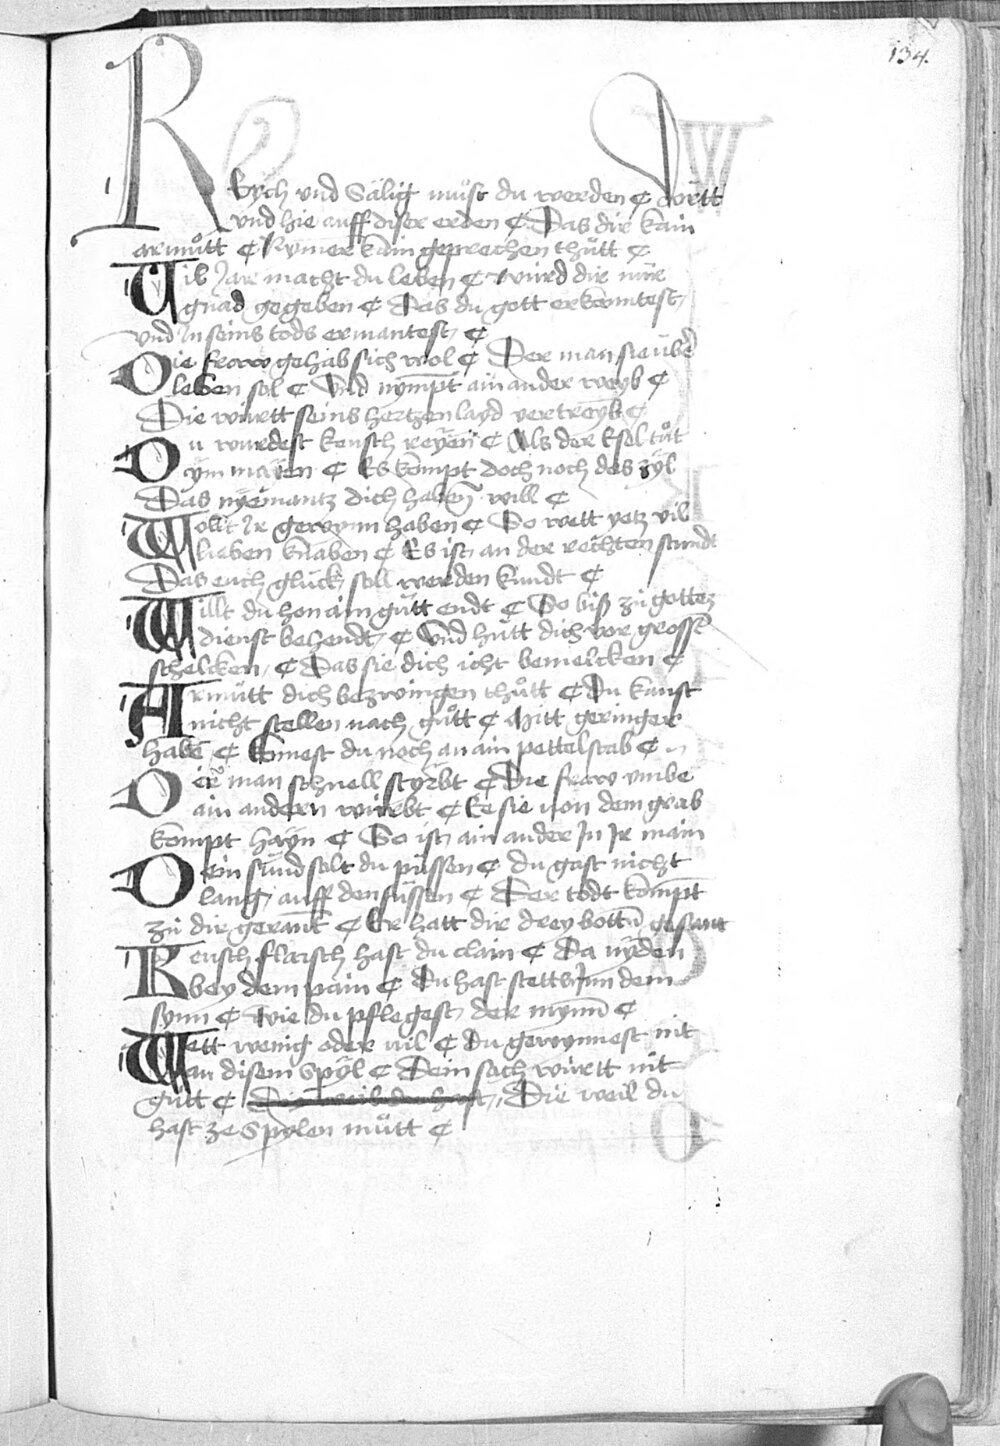 134.
Reych vnd Sälig müst du werden ¢ dortt
vnd hie auff diser erden ¢ Das dir kain
armůtt ¢ Nymer kain geprechen thůtt ¢
Vil Jar macht du leben ¢ wurd dir nur
gnad gegeben ¢ Das du gott erkanntest,
vnd In seins tods ermantest, ¢
Die fraw gehab sich wol ¢ Der man sie über
leben sol ¢ Vnd nympt ain ander weyb ¢
Die wurtt seins hertzen layd vertreyb ¢
Du wurdest keusch reyen ¢ Als der Esel tůt
ym mayen ¢ Es kompt doch noch das zyl
Das nyemantz dich haben will ¢
Wollt Ir gewynn haben ¢ So wett yetz vil
lieben knaben ¢ Es ist, an der rechten stundt
Das euch glück, soll werden kundt ¢
Willt du hon ain gůtt endt ¢ So biß zů gottez
dienst behendt, ¢ Vnd hütt dich vor grossen
schelcken, ¢ Das sie dich icht bemelcken ¢
Armůtt dich bezwingen thůtt ¢ Du kanst
nicht stellen nach gůtt ¢ Mitt geringer
habe ¢ kumest du noch an ain pettelstab ¢
Der man schnell styrbt ¢ Die fraw vmbe
ain andern wirbt ¢ Ee sie von dem grab
kompt hayn ¢ So ist, ain ander In Ir main
Dein sünd solt du püssen ¢ du gast nicht
lang, auff den füssen ¢ Der todt kompt
zů dir gerant ¢ Er hatt dir drey botten gesant
Keusch flaisch hast du clain ¢ Da nyden
bey dem pain ¢ Du hast stetts Inn dem
synn ¢ wie du pflegest, der mynn ¢
Wett wenig oder vil ¢ du gewynnest nit
an disem Spyl ¢ Dein sach württ nit
gůtt ¢ Die weil du hast, Die weil du
hast ze Spylen můtt ¢